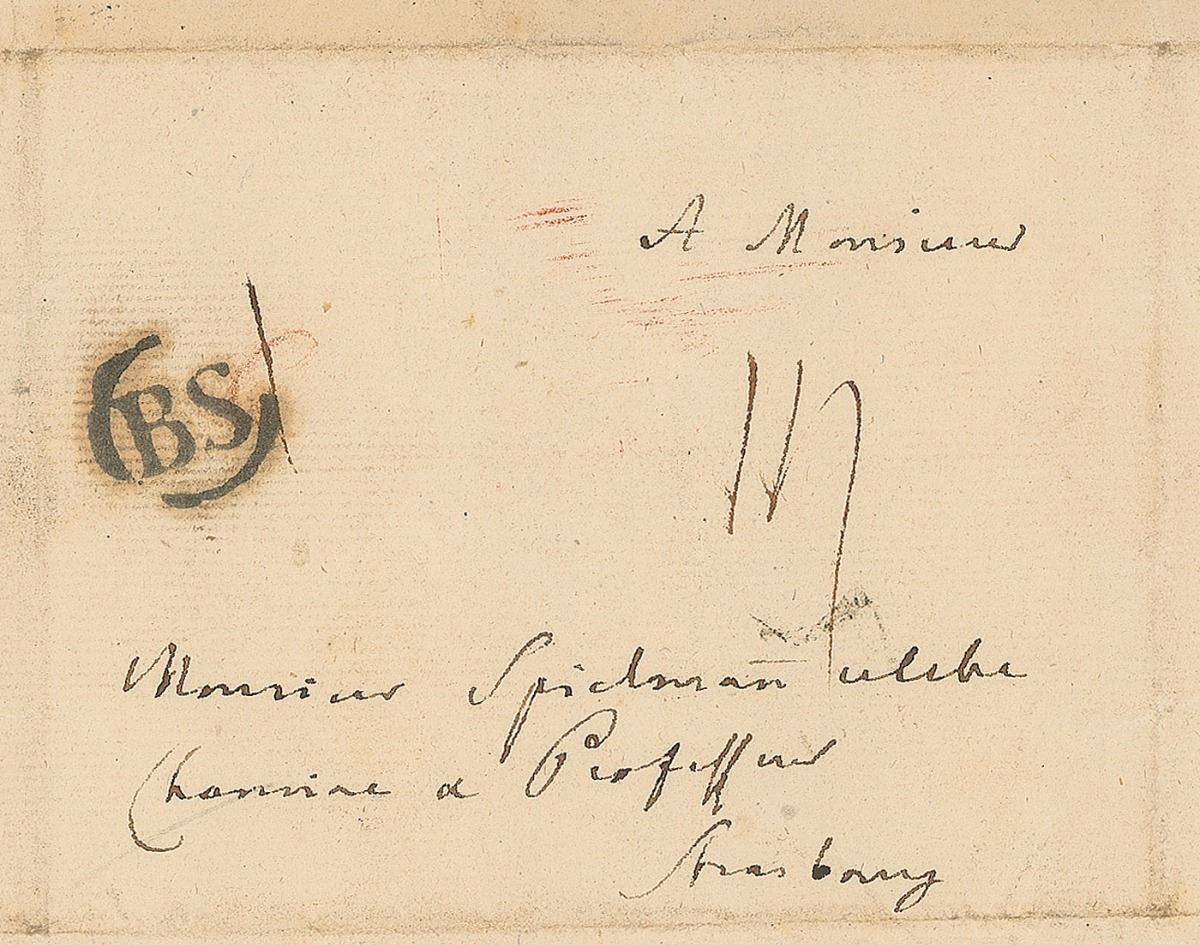 A Monsieur
BS
Monsieur Spielman celebre
Chymiae a Professeur
Strasbourg